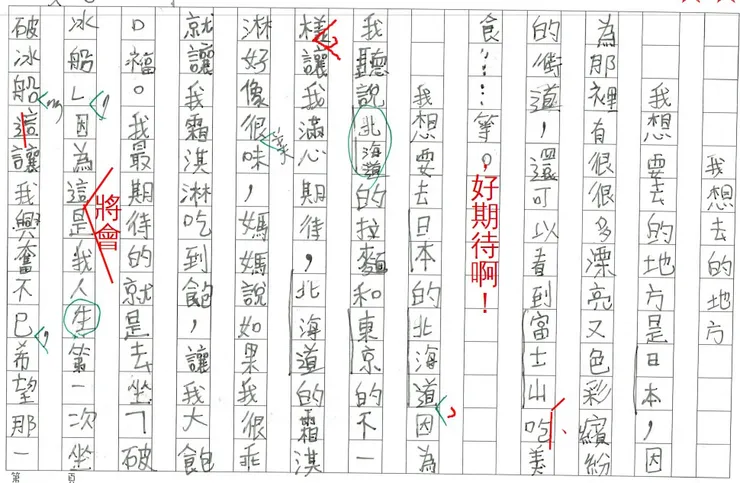 我想去的地方
我想要去的地方是日本，因
為那裡有很很多漂亮又色彩繽紛
的街道，還可以看到富士山吃美
食……等。好期待啊！
我想要去日本的北海道，因為
我聽說北海道的拉麵和東京的不一
樣讓我滿心期待，北海道的霜淇
淋好像很美味，媽媽說如果我很乖
就讓我霜淇淋吃到飽，讓我大飽
口福。我最期待的就是去坐「破
冰船」，因為這將會是我人生第一次坐
破冰船這讓我興奮不已，希望那一
第 頁